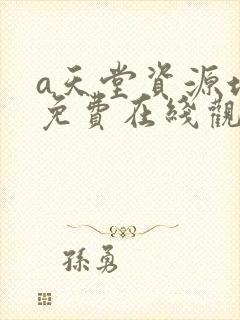 a天堂資源地
免費在綫觀
孫勇